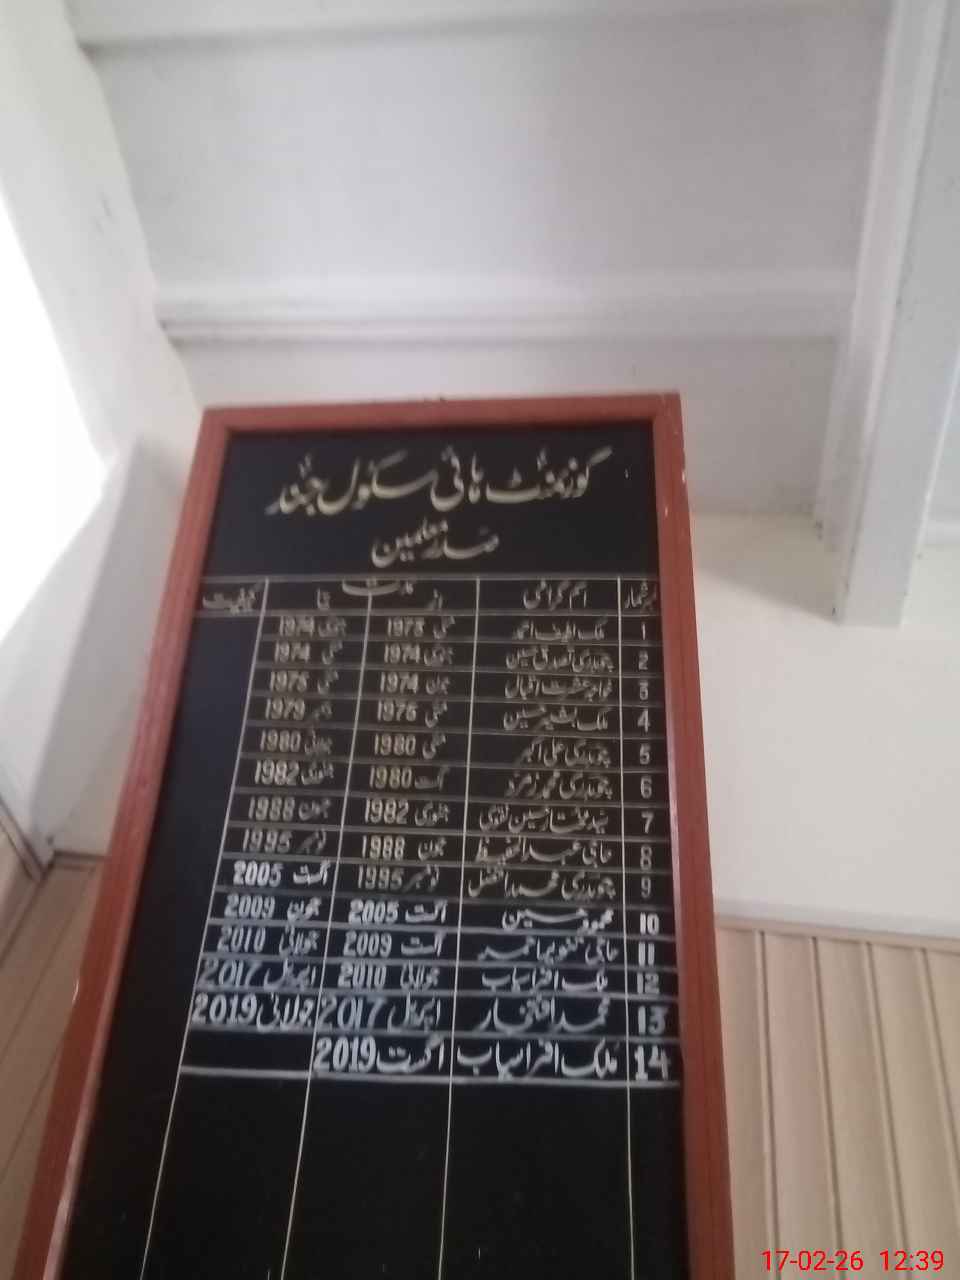 گورنمنٹ ہائی سکول جنڈ
صدر معلمین
نمبر شمار اسم گرامی مدت از تا کیفیت
1 ملک لطیف احمد مئی 1973 جنوری 1974
2 چوہدری تصدق حسین جنوری 1974 مئی 1974
3 خواجہ عشرت اقبال جون 1974 مئی 1975
4 ملک بشیر حسین مئی 1975 1979
5 چوہدری علی اکبر مئی 1980 جولائی 1980
6 چوہدری محمد زمرد اگست 1980 جنوری 1982
7 سید مختار حسین نقوی جنوری 1982 جون 1988
8 حاجی عبدالحفیظ جون 1988 نومبر 1995
9 چوہدری محمد افضل نومبر 1995 اگست 2005
10 محمود حسین اگست 2005 جون 2009
11 حاجی تنویر احمد اگست 2009 جولائی 2010
12 ملک افراسیاب جولائی 2010 اپریل 2017
13 محمد افتخار اپریل 2017 جولائی 2019
14 ملک افراسیاب اگست 2019
17-02-26 12:39